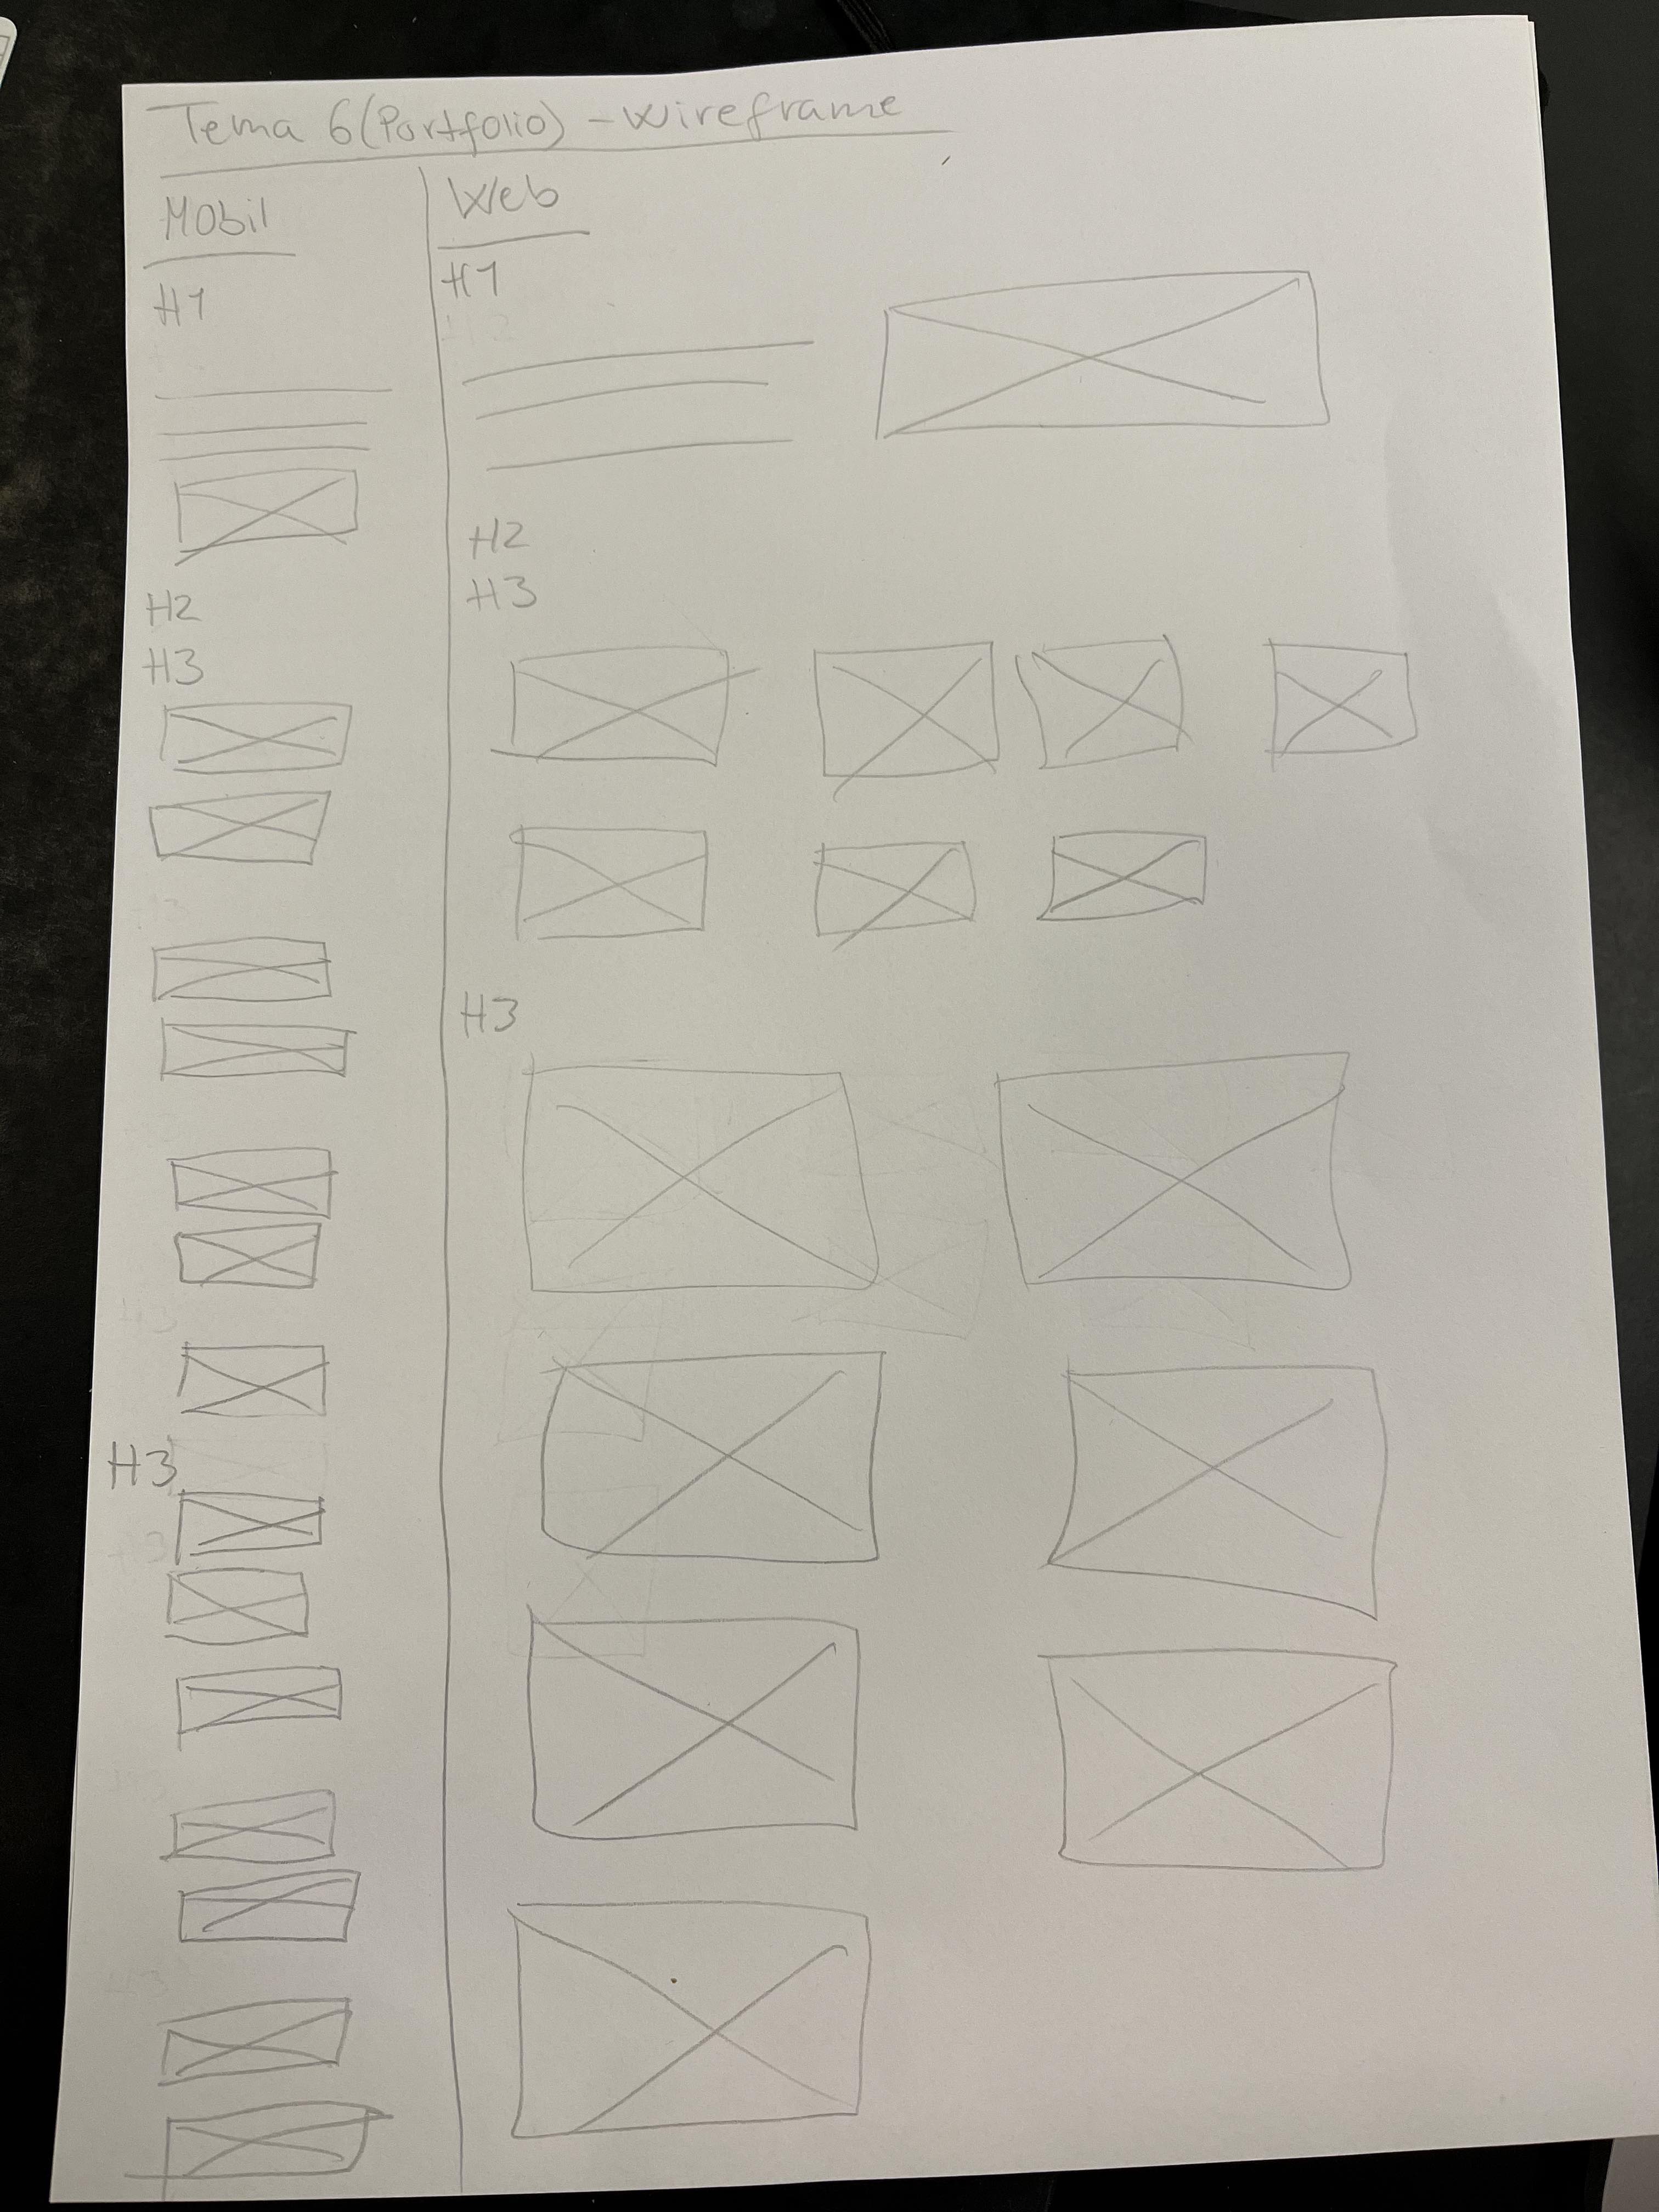 Tema 6 (Portfolio) - Wireframe
Mobil
H1
H2
H3
H3
Web
H1
H2
H3
H3